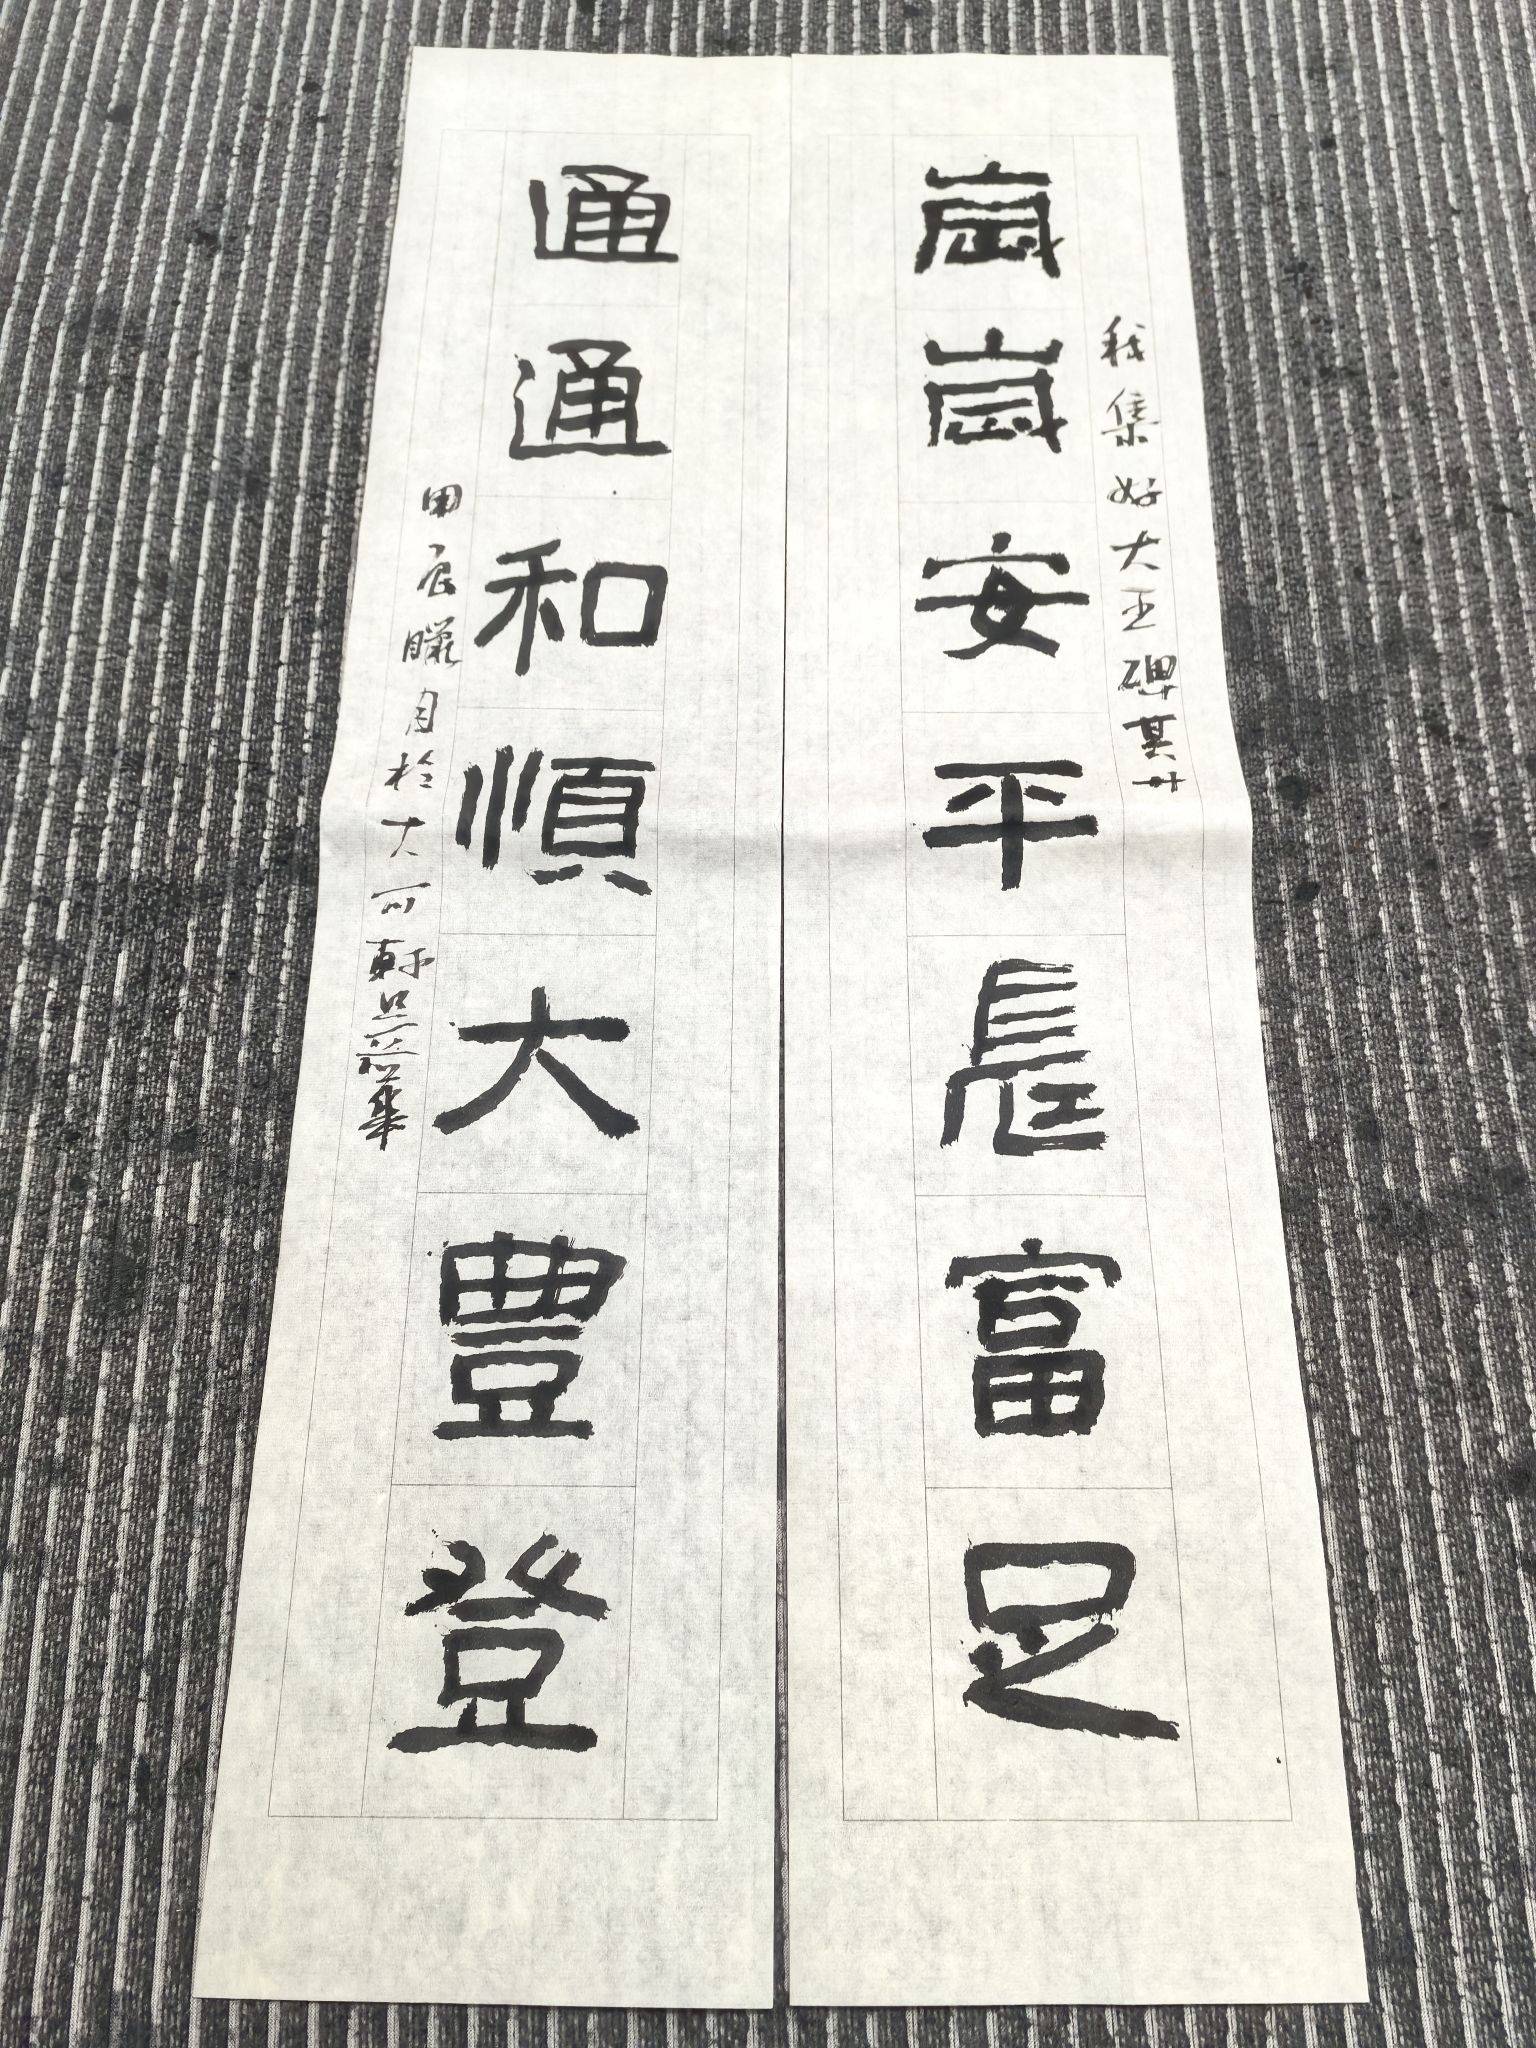 歲歲安平長富足
我集好大王碑其廿
通通和順大豐登
甲辰臘月於大可軒華